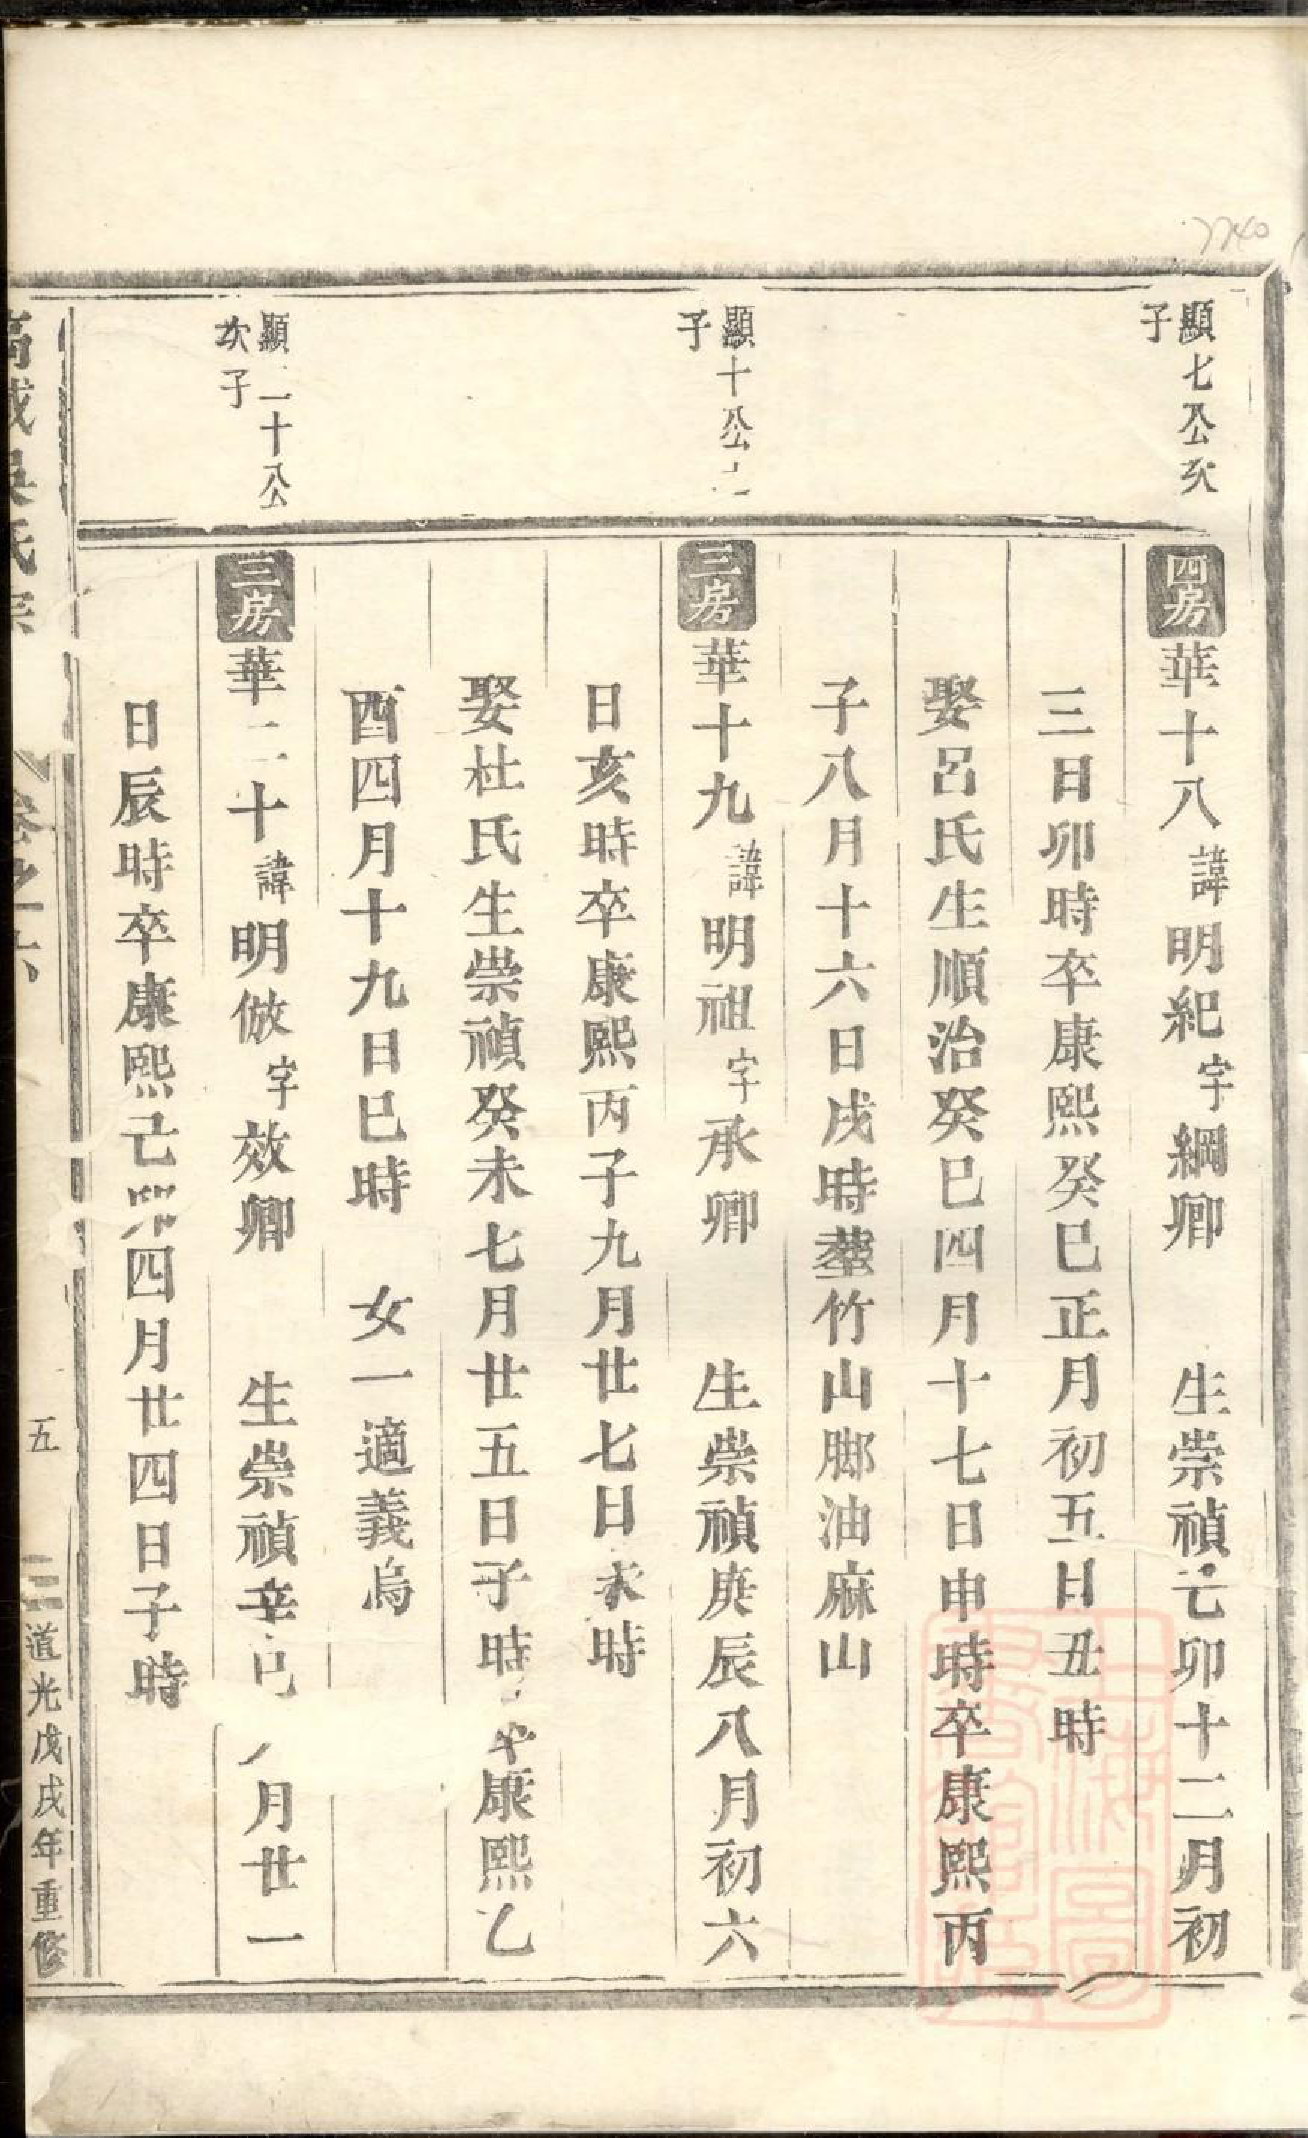 7740
顯七公次
子
四房華十八諱明紀字綱卿　生崇禎己卯十二月初
三日卯時卒康熙癸巳正月初五日丑時
娶呂氏生順治癸巳四月十七日申時卒康熙丙
子八月十六日戌時塟竹山脚油麻山
顯十公
子
三房華十九諱明祖字承卿　生崇禎庚辰八月初六
日亥時卒康熙丙子九月廿七日時
娶杜氏生崇禎癸未七月廿五日子時卒康熙乙
酉四月十九日巳時　女一適義烏
顯二十公
次子
三房華二十諱明倣字效卿　生崇禎辛巳月廿一
日辰時卒康熙己卯四月廿四日子時
吳氏宗
卷之六
五
道光戊戌年重修